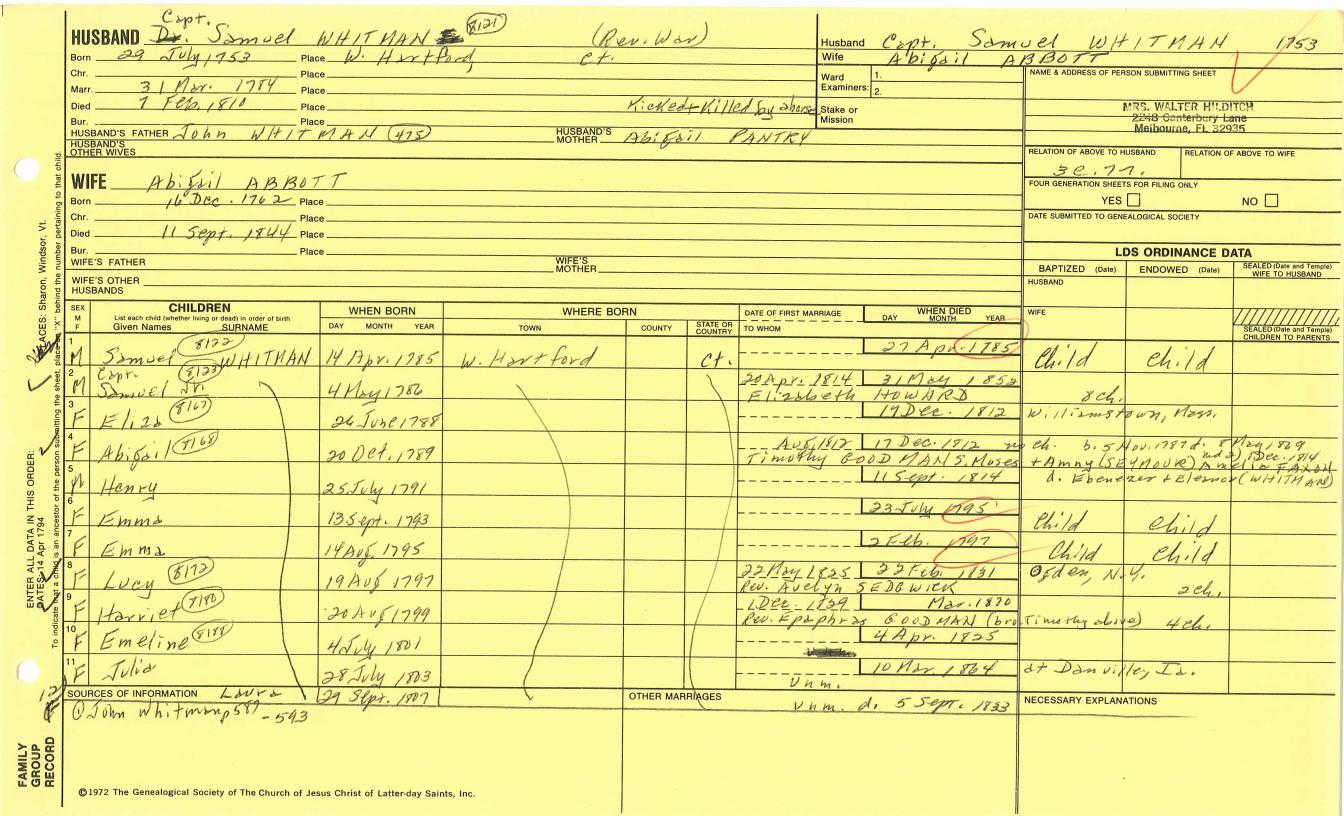 Capt.
HUSBAND Dr. Samuel WHITMAN 8121 (Rev. War)
Born 29 July 1753 Place W. Hartford, Ct.
Chr. Place
Marr. 31 Mar. 1784 Place
Died 7 Feb. 1810 Place Kicked + Killed by a horse
Bur. Place
HUSBAND'S FATHER John WHITMAN 475 HUSBAND'S MOTHER Abigail PANTRY
HUSBAND'S OTHER WIVES
WIFE Abigail ABBOTT
Born 16 Dec. 1762 Place
Chr. Place
Died 11 Sept. 1844 Place
Bur. Place
WIFE'S FATHER WIFE'S MOTHER
WIFE'S OTHER HUSBANDS
Husband Capt. Samuel WHITMAN 1753
Wife Abigail ABBOTT
Ward Examiners: 1.
2.
Stake or Mission
NAME & ADDRESS OF PERSON SUBMITTING SHEET
MRS. WALTER HILDITCH
2248 Canterbury Lane
Melbourne, FL 32935
RELATION OF ABOVE TO HUSBAND RELATION OF ABOVE TO WIFE
FOUR GENERATION SHEETS FOR FILING ONLY
YES NO
DATE SUBMITTED TO GENEALOGICAL SOCIETY
LDS ORDINANCE DATA
BAPTIZED (Date) ENDOWED (Date) SEALED (Date and Temple) WIFE TO HUSBAND
HUSBAND
WIFE
SEALED (Date and Temple) CHILDREN TO PARENTS
SEX M F
CHILDREN
List each child (whether living or dead) in order of birth
Given Names SURNAME
WHEN BORN
DAY MONTH YEAR
WHERE BORN
TOWN COUNTY STATE OR COUNTRY
DATE OF FIRST MARRIAGE
TO WHOM
WHEN DIED
DAY MONTH YEAR
1 M Samuel 8122 WHITMAN 14 Apr. 1785 W. Hartford Ct. 27 Apr. 1785 Child Child
2 M Capt. Samuel Jr. 8123 4 May 1786 20 Apr. 1814 31 May 1852
Elizabeth HOWARD 8ch.
3 F Eliza 8167 26 June 1788 19 Dec. 1812 Williamstown, Mass.
4 F Abigail 8168 20 Oct. 1789 Aug 1812 17 Dec. 1812 no ch. b. 5 Nov. 1787 d. 8 May 1829
Timothy GOODMAN S. Moses + Amny (SEYMOUR) md 2) Dec. 1814 Amelia FAXON
d. Ebenezer + Eleanor (WHITMAN)
5 M Henry 25 July 1791 11 Sept. 1814
6 F Emma 13 Sept. 1793 23 July 1795 Child Child
7 F Emma 14 Aug 1795 2 Feb. 1797 Child Child
8 F Lucy 8172 19 Aug 1797 22 May 1825 22 Feb. 1831 Ogden, N.Y.
Rev. Avelyn SEDGWICK 2ch.
9 F Harriet 8180 20 Aug 1799 1 Dec. 1829 Mar. 1870
Rev. Epaphras GOODMAN (bro. Timothy above) 4ch.
10 F Emeline 8188 4 July 1801 4 Apr. 1825
11 F Julia 28 July 1803 10 Mar. 1864 at Danville, Ia.
Unm.
12 F Laura 29 Sept. 1807 Unm. d. 5 Sept. 1833
SOURCES OF INFORMATION
① John Whitman p 589 - 593
OTHER MARRIAGES
NECESSARY EXPLANATIONS
©1972 The Genealogical Society of The Church of Jesus Christ of Latter-day Saints, Inc.
FAMILY GROUP RECORD
ENTER ALL DATA IN THIS ORDER:
DATES: 14 Apr 1794
PLACES: Sharon, Windsor, Vt.
To indicate that a child is an ancestor of the person submitting the sheet, place an "X" behind the number pertaining to that child.